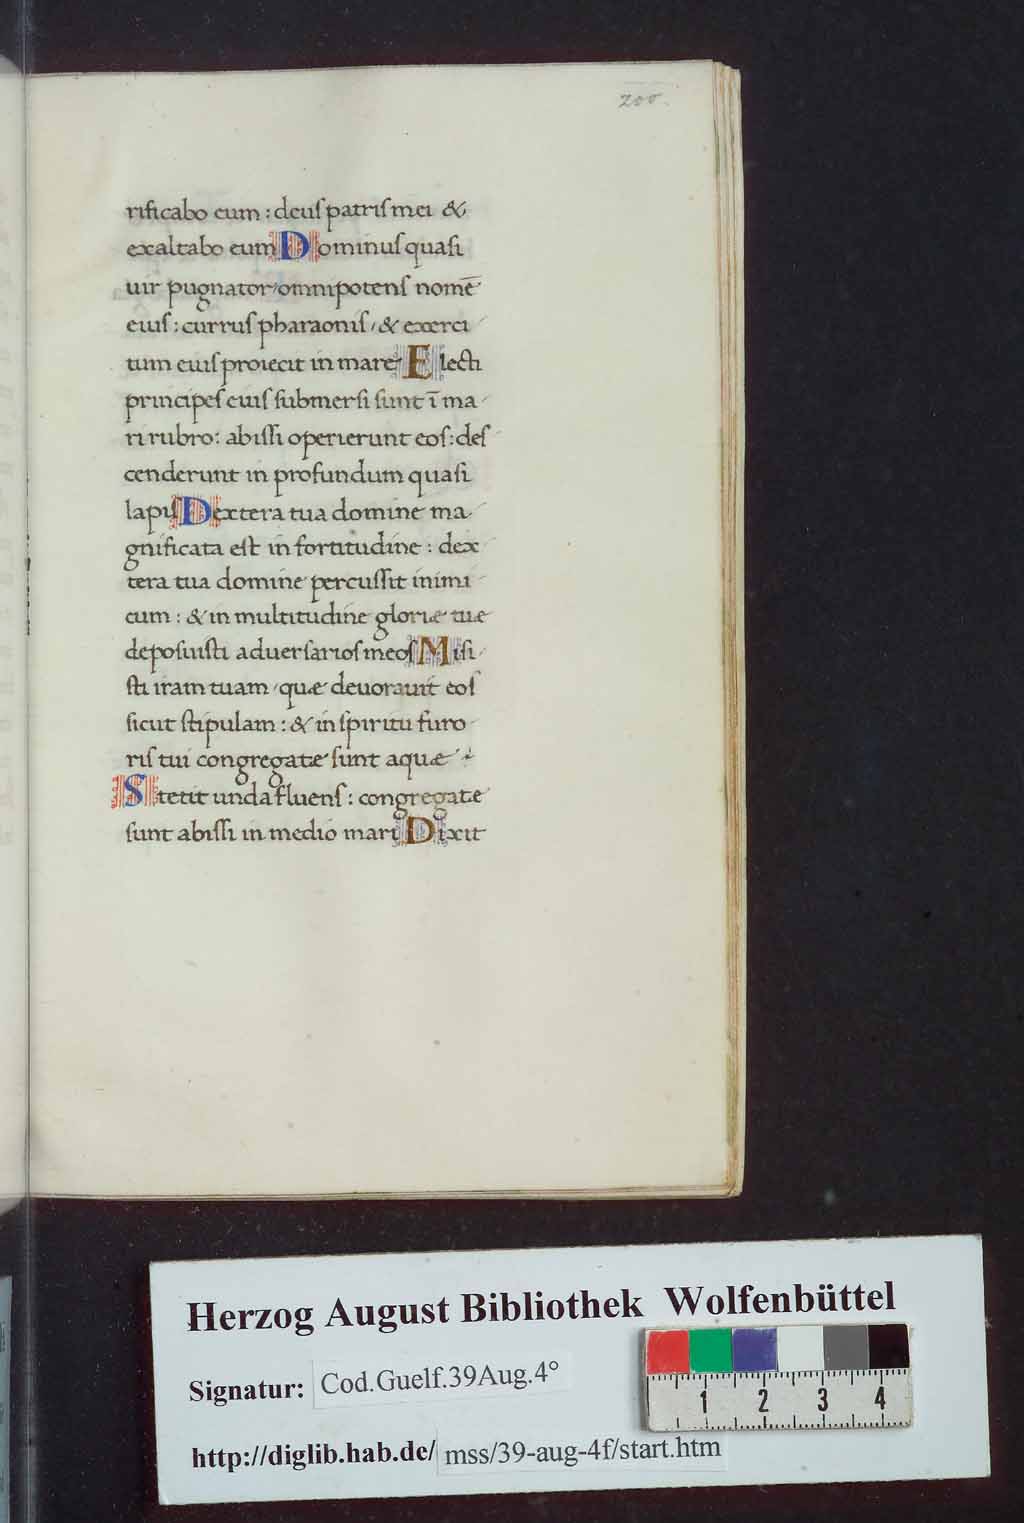 200.
rificabo eum : deus patris mei &
exaltabo eum Dominus quasi
uir pugnator, omnipotens nomē
eius : currus pharaonis, & exerci
tum eius proiecit in mare Electi
principes eius submersi sunt ī ma
ri rubro : abissi operierunt eos : des
cenderunt in profundum quasi
lapis Dextera tua domine ma
gnificata est in fortitudine : dex
tera tua domine percussit inimi
cum : & in multitudine gloriæ tuæ
deposuisti aduersarios meos Misi
sti iram tuam, quæ deuorauit eos
sicut stipulam : & in spiritu furo
ris tui congregatæ sunt aquæ
Stetit unda fluens : congregatæ
sunt abissi in medio mari Dixit
Herzog August Bibliothek Wolfenbüttel
Signatur: Cod.Guelf.39Aug.4°
http://diglib.hab.de/ mss/39-aug-4f/start.htm
1 2 3 4